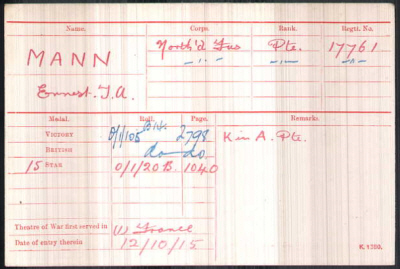 Name. Corps. Rank. Regtl. No.
MANN North'd Fus Pte. 17761
Ernest. J.A. —"— —"— —"—
Medal. Roll. Page. Remarks.
VICTORY O/1/105 B14. 2798 K in A. Pte.
BRITISH do do
15 STAR O/1/20 B. 1040
Theatre of War first served in (1) France
Date of entry therein 12/10/15
K. 1380.